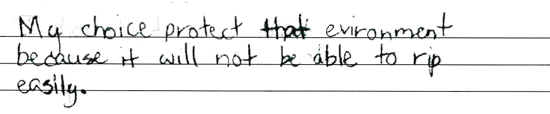 My choice protect that evironment
because it will not be able to rip
easily.